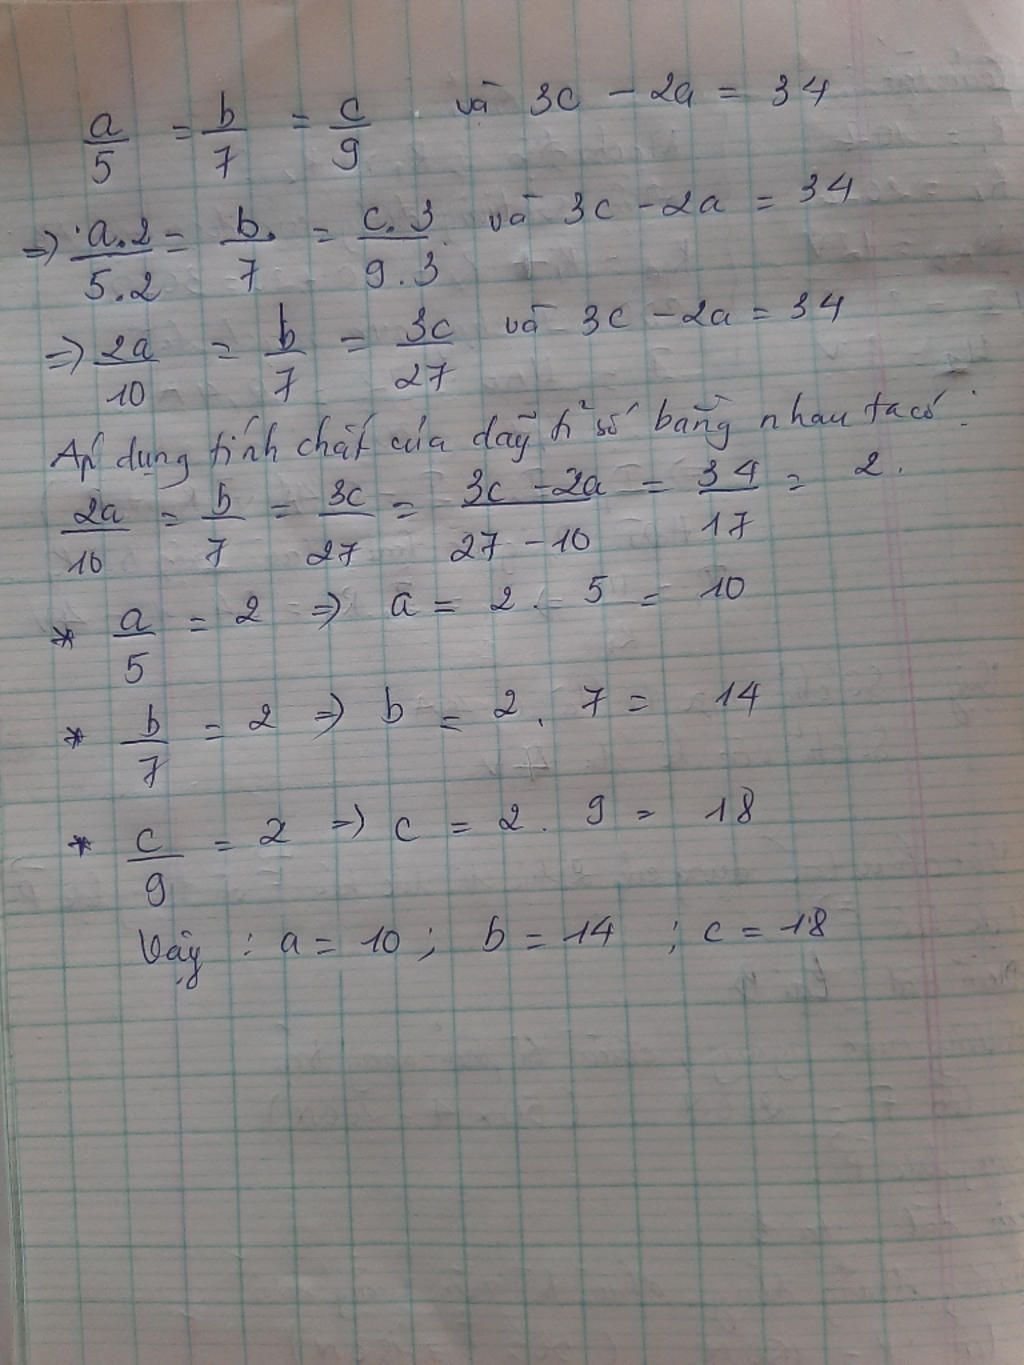 a/5 = b/7 = c/9 và 3c - 2a = 34
=> a.2/5.2 = b./7 = c.3/9.3 và 3c - 2a = 34
=> 2a/10 = b/7 = 3c/27 và 3c - 2a = 34
Áp dụng tính chất của dãy tỉ số bằng nhau ta có :
2a/10 = b/7 = 3c/27 = 3c - 2a/27 - 10 = 34/17 = 2.
* a/5 = 2 => a = 2 . 5 = 10
* b/7 = 2 => b = 2 . 7 = 14
* c/9 = 2 => c = 2 . 9 = 18
Vậy : a = 10 ; b = 14 ; c = 18